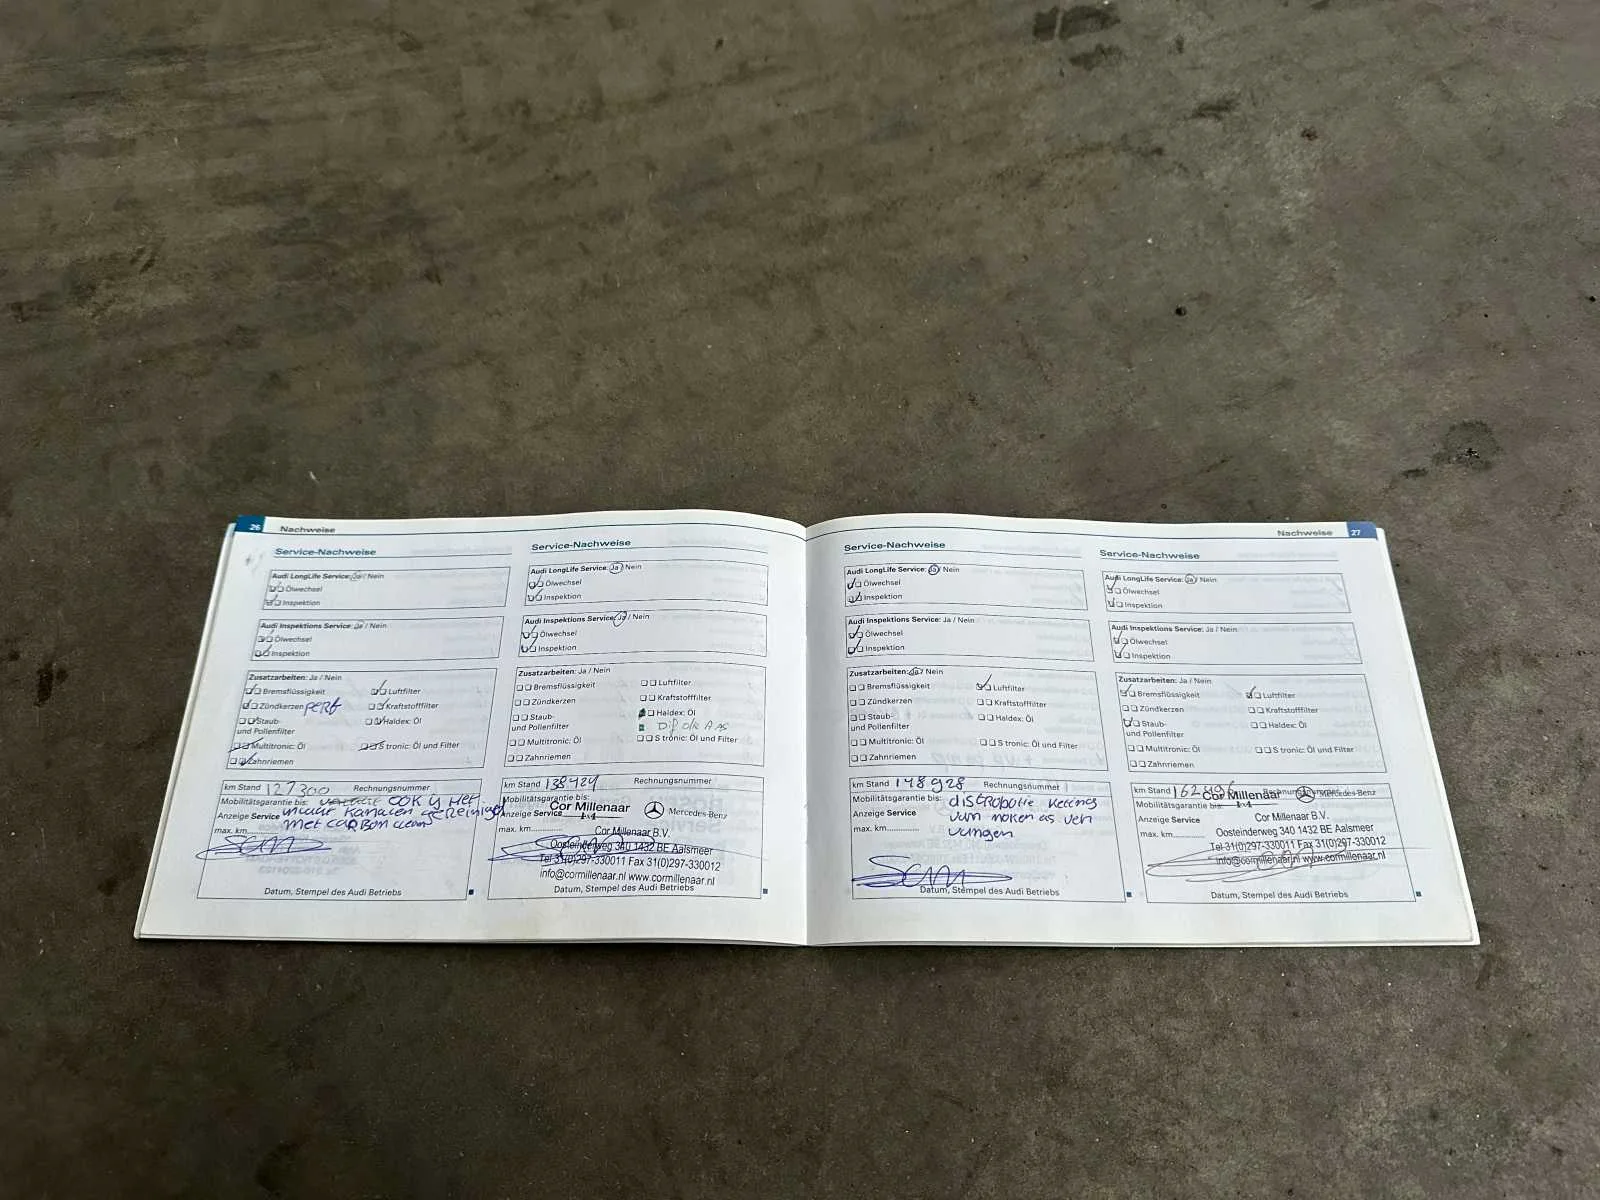 26 Nachweise
Service-Nachweise
Audi LongLife Service: Ja / Nein
Ölwechsel
Inspektion
Audi Inspektions Service: Ja / Nein
Ölwechsel
Inspektion
Zusatzarbeiten: Ja / Nein
Bremsflüssigkeit Luftfilter
Zündkerzen Kraftstofffilter
Staub- Haldex: Öl
und Pollenfilter
Multitronic: Öl S tronic: Öl und Filter
Zahnriemen
km Stand 127300 Rechnungsnummer
Mobilitätsgarantie bis: OOK is HET
Anzeige Service Kanalen gereinigd
max. km met carbon clean
Datum, Stempel des Audi Betriebs
Service-Nachweise
Audi LongLife Service: Ja / Nein
Ölwechsel
Inspektion
Audi Inspektions Service: Ja / Nein
Ölwechsel
Inspektion
Zusatzarbeiten: Ja / Nein
Bremsflüssigkeit Luftfilter
Zündkerzen Kraftstofffilter
Staub- Haldex: Öl
und Pollenfilter
Multitronic: Öl S tronic: Öl und Filter
Zahnriemen
km Stand 138424 Rechnungsnummer
Mobilitätsgarantie bis:
Cor Millenaar Mercedes-Benz
4x4
Anzeige Service
max. km
Cor Millenaar B.V.
Oosteinderweg 340 1432 BE Aalsmeer
Tel 31(0)297-330011 Fax 31(0)297-330012
info@cormillenaar.nl www.cormillenaar.nl
Datum, Stempel des Audi Betriebs
Nachweise 27
Service-Nachweise
Audi LongLife Service: Ja / Nein
Ölwechsel
Inspektion
Audi Inspektions Service: Ja / Nein
Ölwechsel
Inspektion
Zusatzarbeiten: Ja / Nein
Bremsflüssigkeit Luftfilter
Zündkerzen Kraftstofffilter
Staub- Haldex: Öl
und Pollenfilter
Multitronic: Öl S tronic: Öl und Filter
Zahnriemen
km Stand 148928 Rechnungsnummer
Mobilitätsgarantie bis: distributie ketting
Anzeige Service
max. km
Datum, Stempel des Audi Betriebs
Service-Nachweise
Audi LongLife Service: Ja / Nein
Ölwechsel
Inspektion
Audi Inspektions Service: Ja / Nein
Ölwechsel
Inspektion
Zusatzarbeiten: Ja / Nein
Bremsflüssigkeit Luftfilter
Zündkerzen Kraftstofffilter
Staub- Haldex: Öl
und Pollenfilter
Multitronic: Öl S tronic: Öl und Filter
Zahnriemen
km Stand Rechnungsnummer
Cor Millenaar Mercedes-Benz
4x4
Mobilitätsgarantie bis:
Anzeige Service
max. km
Cor Millenaar B.V.
Oosteinderweg 340 1432 BE Aalsmeer
Tel 31(0)297-330011 Fax 31(0)297-330012
info@cormillenaar.nl www.cormillenaar.nl
Datum, Stempel des Audi Betriebs